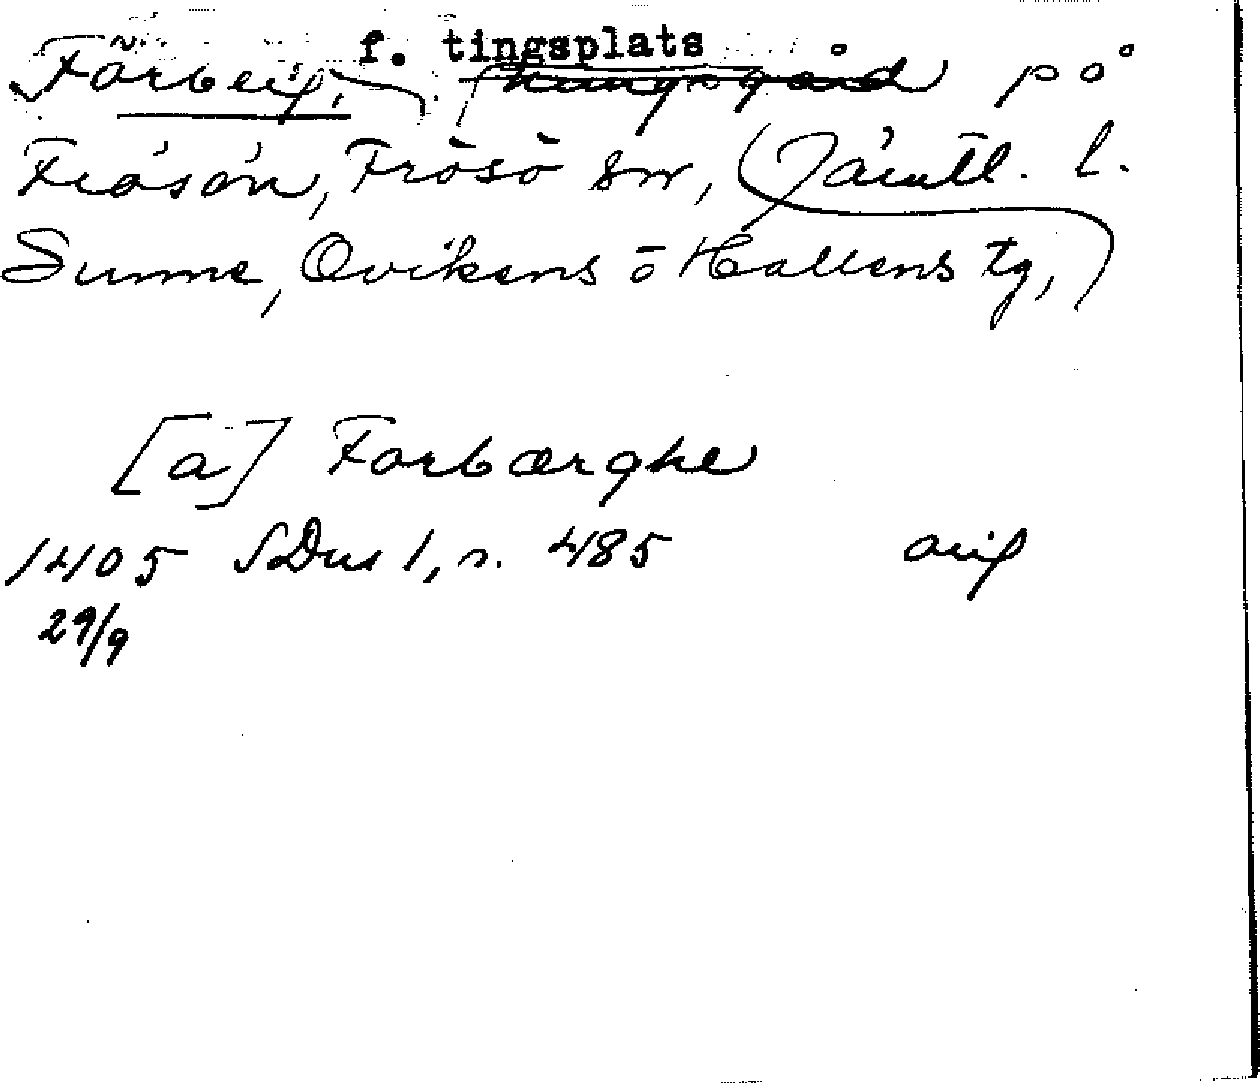 Förberg, f. tingsplats f kungsgård på
Frösön, Frösö sn, (Jämtl. l.
Sunne, Ovikens o Hallens tg,)
[a] Forbærghe
1405 SDns 1, s. 485 orig
29/9